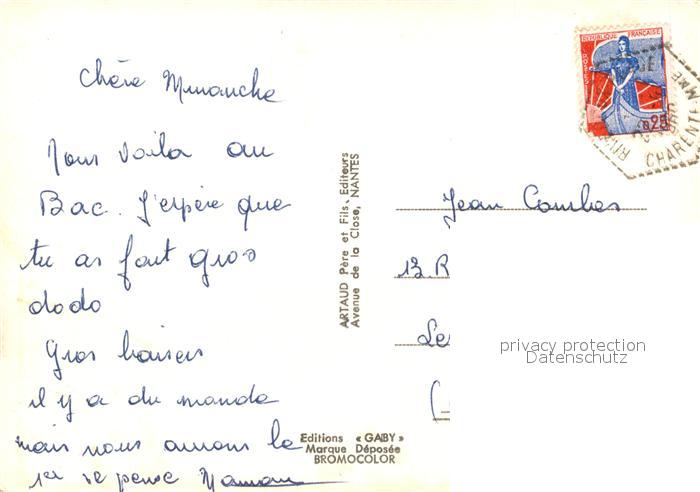 Chère Minouche
Nous voila au
Bac. J'espère que
tu as fait gros
dodo
Gros baisers
il y a du monde
mais nous avons le
1er je pense Maman
ARTAUD Père et Fils, Editeurs
Avenue de la Close, NANTES
Editions « GABY »
Marque Déposée
BROMOCOLOR
REPUBLIQUE FRANÇAISE
POSTES
0,25
CHARENTE MME
Jean Combes
13 R
Le
(
privacy protection
Datenschutz